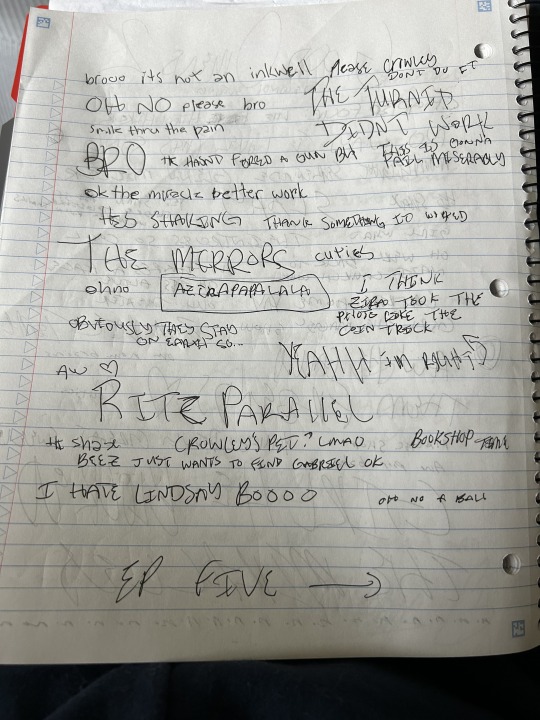 brooo its not an inkwell please crowley
DONT DO IT
OH NO please bro
THE TURNIP
smile thru the pain
DIDNT WORK
BRO HE HAND FORGED A GUN BUT THIS IS GONNA
FAIL MISERABLY
ok the miracle better work
HES SHAKING THANK SOMETHING IT WORKED
THE MIRRORS cuties
ohno AZIRAPAPALALA I THINK
ZIRA TOOK THE
PHOTO LIKE THE
COIN TRICK
OBVIOUSLY THEY STAY
ON EARTH SO...
YEAHH im RIGHT
AW ♡
RITZ PARALLEL
CROWLEY'S PET? LMAO BOOKSHOP TIME
BEEZ JUST WANTS TO FIND GABRIEL OK
I HATE LINDSAY BOOOO OH NO A BALL
EP FIVE →